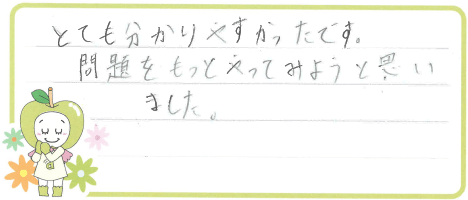 とても分かりやすかったです。
問題をもっとやってみようと思い
ました。